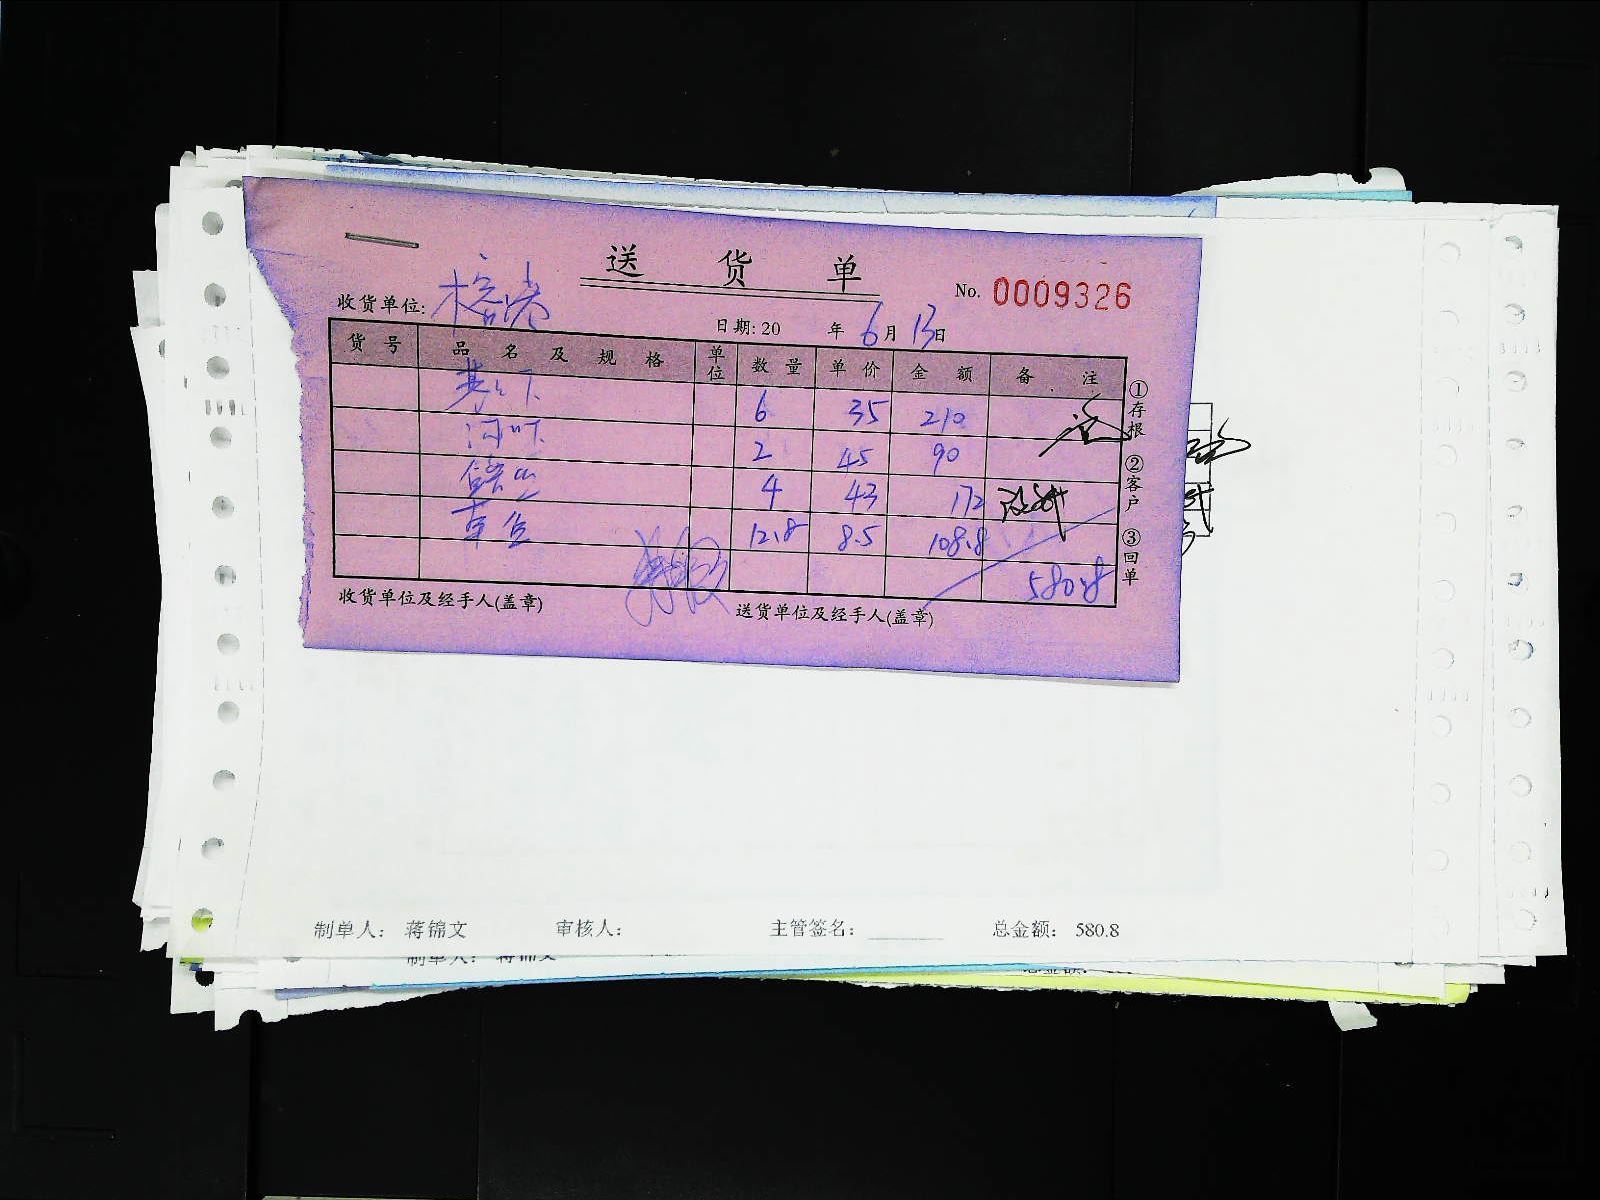 送 货 单
No. 0009326
收货单位:
日期: 20 年 6 月 13 日
货 号 品 名 及 规 格 单位 数 量 单 价 金 额 备 注
6 35 210
河虾 2 45 90
2 4 43 172
草鱼 12.8 8.5 108.8
580.8
①存根 ②客户 ③回单
收货单位及经手人(盖章) 送货单位及经手人(盖章)
制单人: 蒋锦文 审核人: 主管签名: 总金额: 580.8
制单人: 蒋锦文